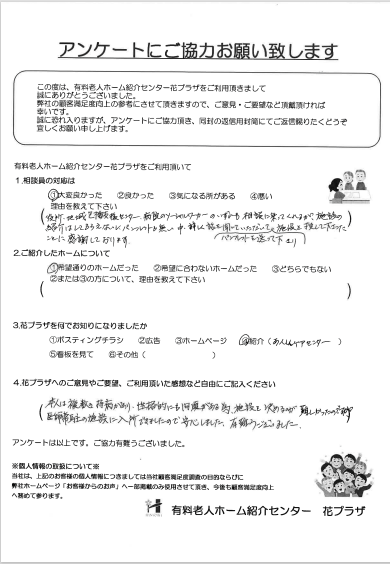 アンケートにご協力お願い致します
この度は、有料老人ホーム紹介センター花プラザをご利用頂きまして
誠にありがとうございました。
弊社の顧客満足度向上の参考にさせて頂きますので、ご意見・ご要望など頂戴頂ければ
幸いです。
誠に恐れ入りますが、アンケートにご協力頂き、同封の返信用封筒にてご返信賜りたくどうぞ
宜しくお願い申し上げます。
有料老人ホーム紹介センター花プラザをご利用頂いて
1.相談員の対応は
①大変良かった ②良かった ③気になる所がある ④悪い
理由を教えて下さい
(役所、地域 支援センター、病院のソーシャルワーカーの いずれも 相談に乗ってくれるが、施設の
紹介はしてもらえない パンフレットも無い中、詳しい話を聞いていただいて、施設を探して下さった
ことに 感謝しております。 パンフレットを送って下さり)
2.ご紹介したホームについて
①希望通りのホームだった ②希望に合わないホームだった ③どちらでもない
②または③の方について、理由を教えて下さい
( )
3.花プラザを何でお知りになりましたか
①ポスティングチラシ ②広告 ③ホームページ ④紹介(あんしんケアセンター)
⑤看板を見て ⑥その他( )
4.花プラザへのご意見やご要望、ご利用頂いた感想など自由にご記入ください
(本人は複数の持病があり、性格的にも問題がある為、施設を決めるのが難しかったのですが
常駐の施設に入所できましたので安心しました。有難うございました。)
アンケートは以上です。ご協力有難うございました。
※個人情報の取扱について※
当社は、上記のお客様の個人情報につきましては当社顧客満足度調査の目的ならびに
弊社ホームページ「お客様からのお声」へ一部掲載のみ使用させて頂き、今後も顧客満足度向上
へ務めて参ります。
有料老人ホーム紹介センター 花プラザ